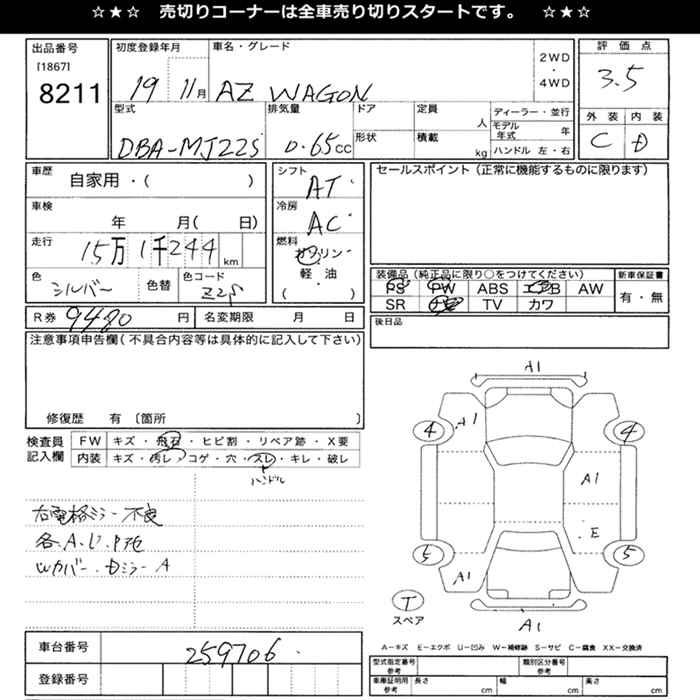 ☆★☆ 売切りコーナーは全車売り切りスタートです。 ☆★☆
出品番号 初度登録年月 車名・グレード 2WD・4WD 評価点
[1867]
8211 19 11月 AZ WAGON 3.5
型式 排気量 ドア 定員 人 ディーラー・並行 外装 内装
DBA-MJ22S 0.65cc 形状 積載 kg モデル年式 年 C D
ハンドル 左・右
車歴 自家用・( ) シフト AT セールスポイント(正常に機能するものに限ります)
車検 年 月( 日) 冷房 AC
走行 15万1千244km 燃料 ガソリン・軽油 ( )
色 シルバー 色替 色コード Z2S
装備品(純正品に限り○をつけてください) 新車保証書
PS PW ABS エアB AW 有・無
SR ナビ TV カワ
R券 9480円 名変期限 月 日 後日品
注意事項申告欄(不具合内容等は具体的に記入して下さい)
修復歴 有 〔箇所 〕
検査員記入欄 FW キズ・飛石・ヒビ割・リペア跡・X要
内装 キズ・汚レ・コゲ・穴・スレ・キレ・破レ
ハンドル
右電格ミラー不良
各.A.U.P
Wカバー.Dミラー A
A1
A1
4 4
A1
E
5 5
A1
T
スペア
A1
A-キズ E-エクボ U-凹み W-補修跡 S-サビ C-腐食 XX-交換済
車台番号 259706
登録番号
型式指定番号 参考 類別区分番号 参考
車庫証明用 参考 長さ cm 幅 cm 高さ cm